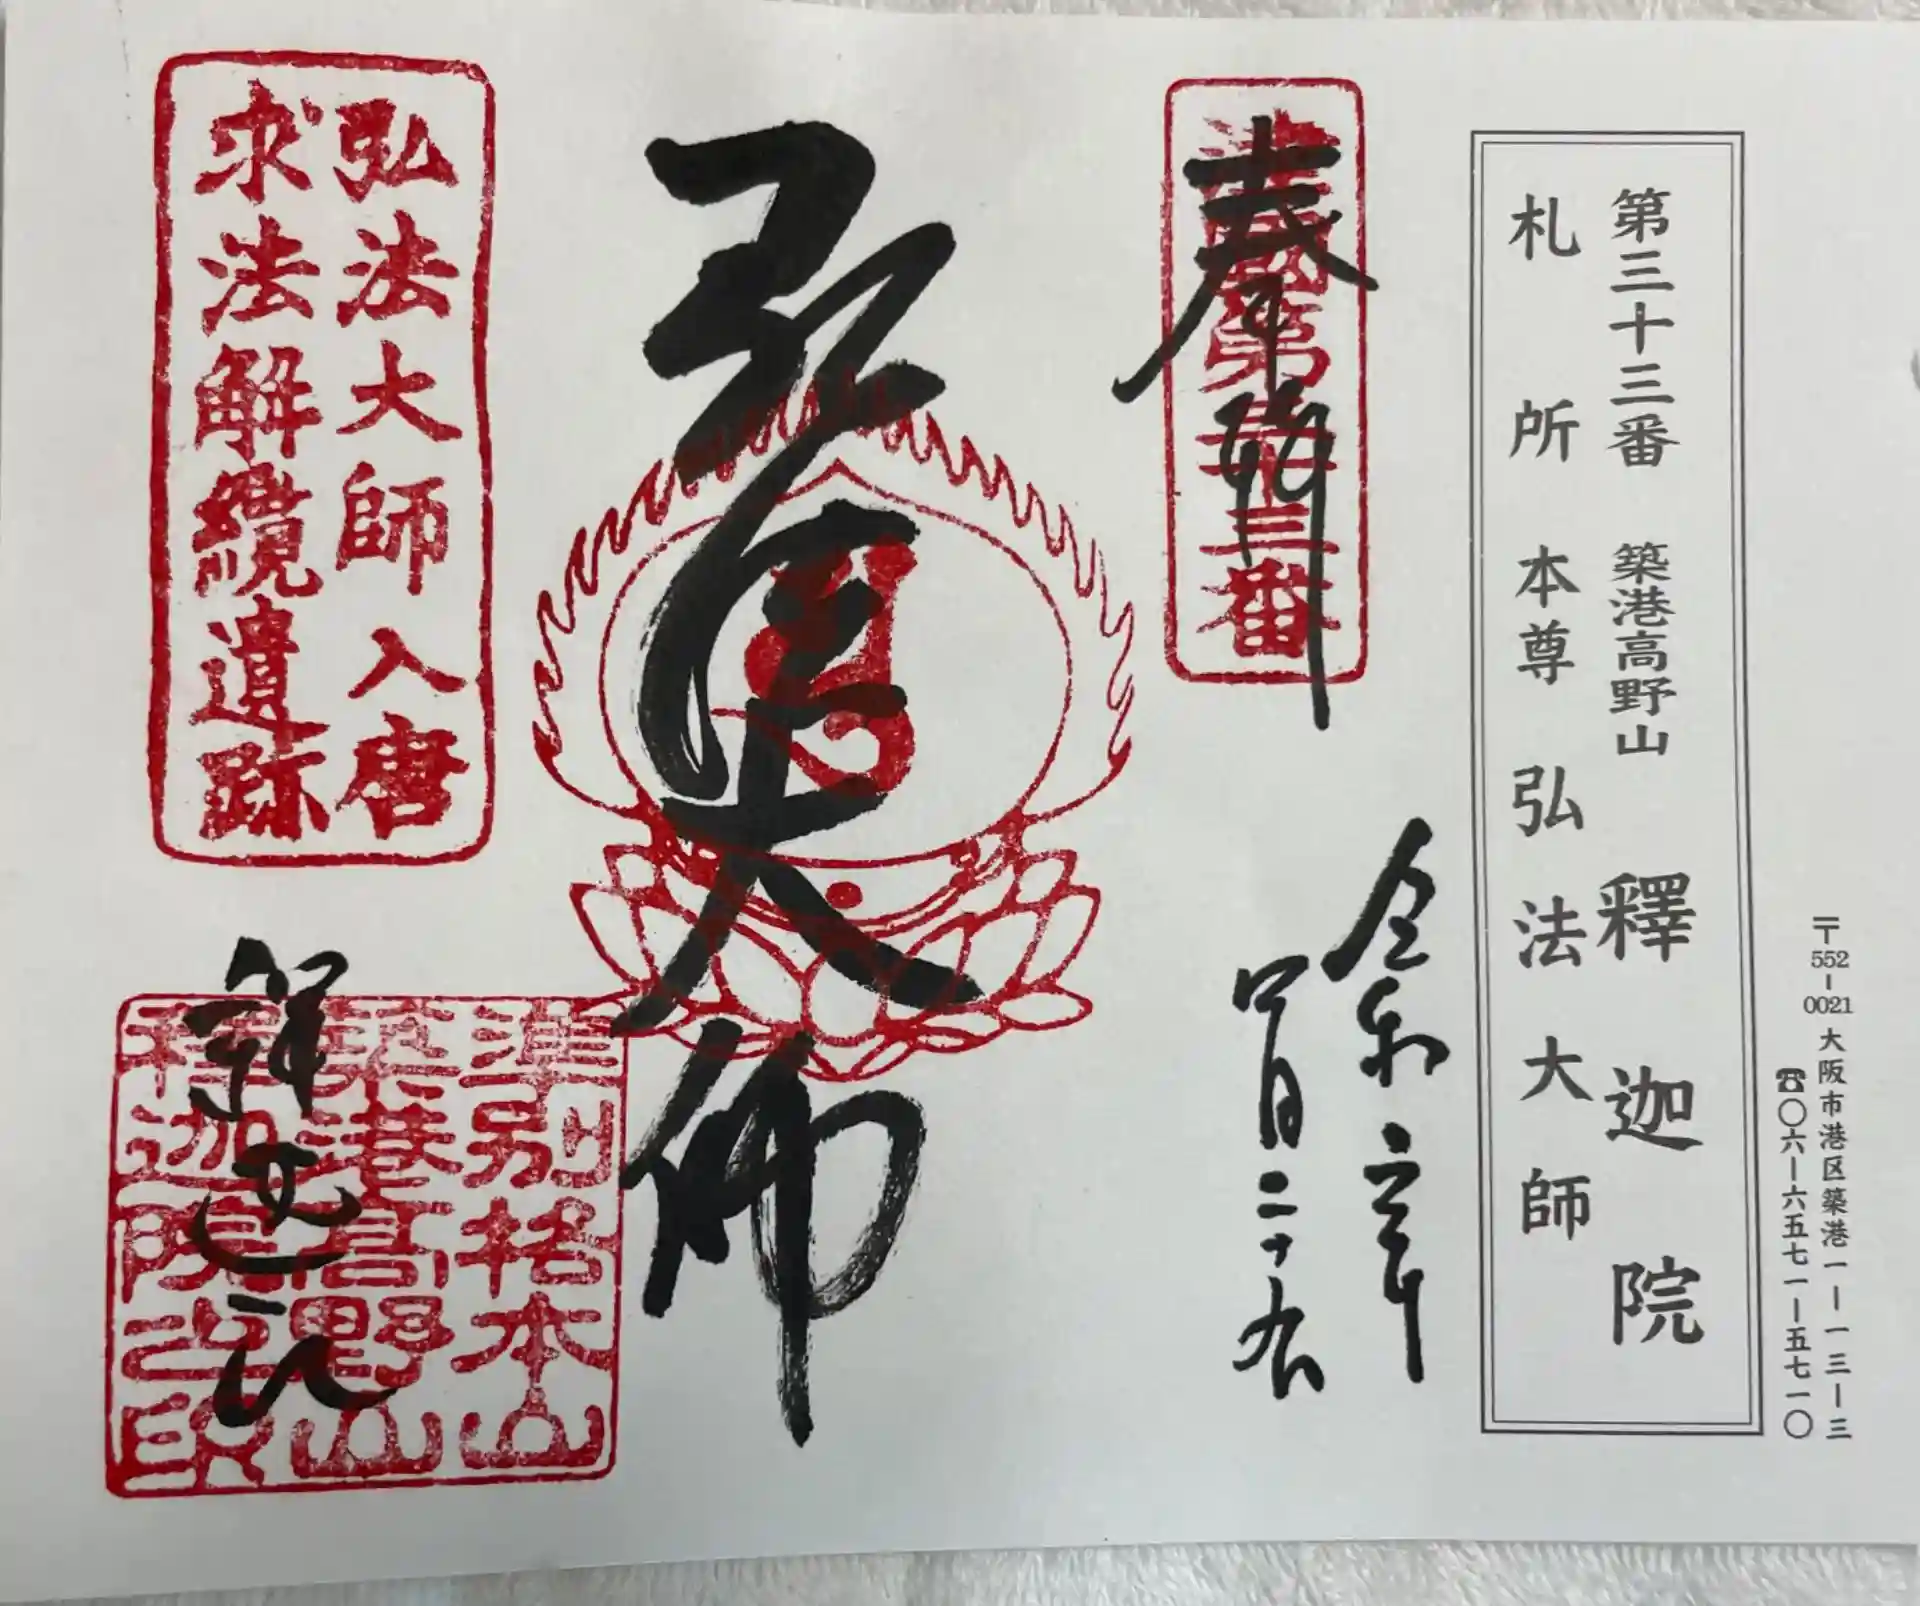 〒552-0021 大阪市港区築港一ー一三ー三
☎〇六ー六五七一ー五七一〇
第三十三番 築港高野山 釋迦院
札所本尊 弘法大師
奉拝
第三十三番
令和六年
四月二十九
弘法大師
弘法大師入唐
求法解纜遺跡
準別格本山
築港高野山
釋迦院之印
釋迦院